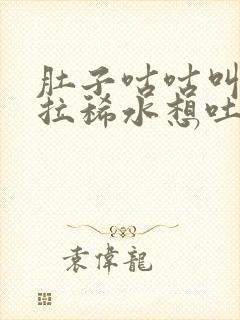 肚子咕咕叫
拉稀水想吐,
袁偉龍